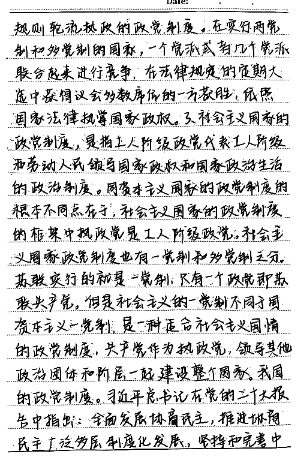 Date:
规则轮流执政的政党制度。在实行两党
制和多党制的国家，一个党派或者几个党派
联合起来进行竞争，在法律规定的定期大
选中获得议会多数席位的一方获胜，依照
国家法律执掌国家政权。3.社会主义国家的
政党制度，是指工人阶级政党代表工人阶级
和劳动人民领导国家政权和国家政治生活
的政治制度。同资本主义国家的政党制度的
根本不同点在于，社会主义国家的政党制度
的框架中执政党是工人阶级政党。社会主
义国家政党制度也有一党制和多党制之分。
苏联实行的就是一党制，只有一个政党即苏
联共产党。但是社会主义的一党制不同于国
资本主义一党制，是一种适合社会主义国情
的政党制度，共产党作为执政党，领导其他
政治团体和阶层一起建设整个国家。我国
的政党制度。习近平总书记在党的二十大报
告中指出：全面发展协商民主，推进协商
民主广泛多层制度化发展，坚持和完善中